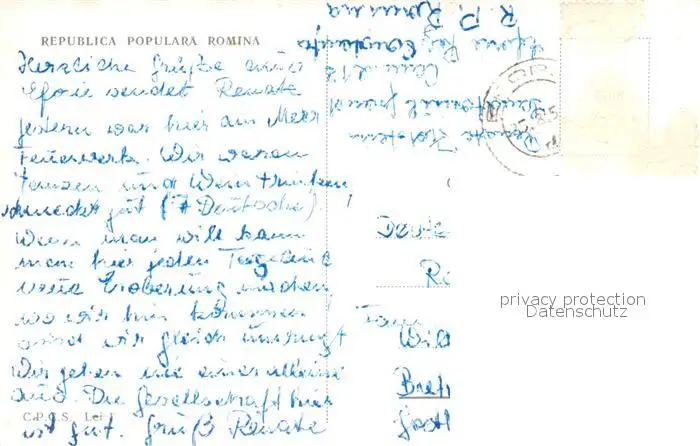 REPUBLICA POPULARA ROMINA
Herzliche Grüße aus
Eforie sendet Renate
gestern war hier am Meer
Feuerwerk. Wir waren
Tanzen und Wein trinken
schmeckt gut (7 Deutsche).
Wenn man will kann
man hier jeden Tag eine
neue Eroberung machen,
wo wir hin kommen
sind wir gleich umringt
Wir gehen nie einer alleine
aus. Die Gesellschaft hier
ist gut. Gruß Renate
C.P.C.S. Lei
R. P. Romina
Renate
Fam
Wil
Bret
privacy protection
Datenschutz